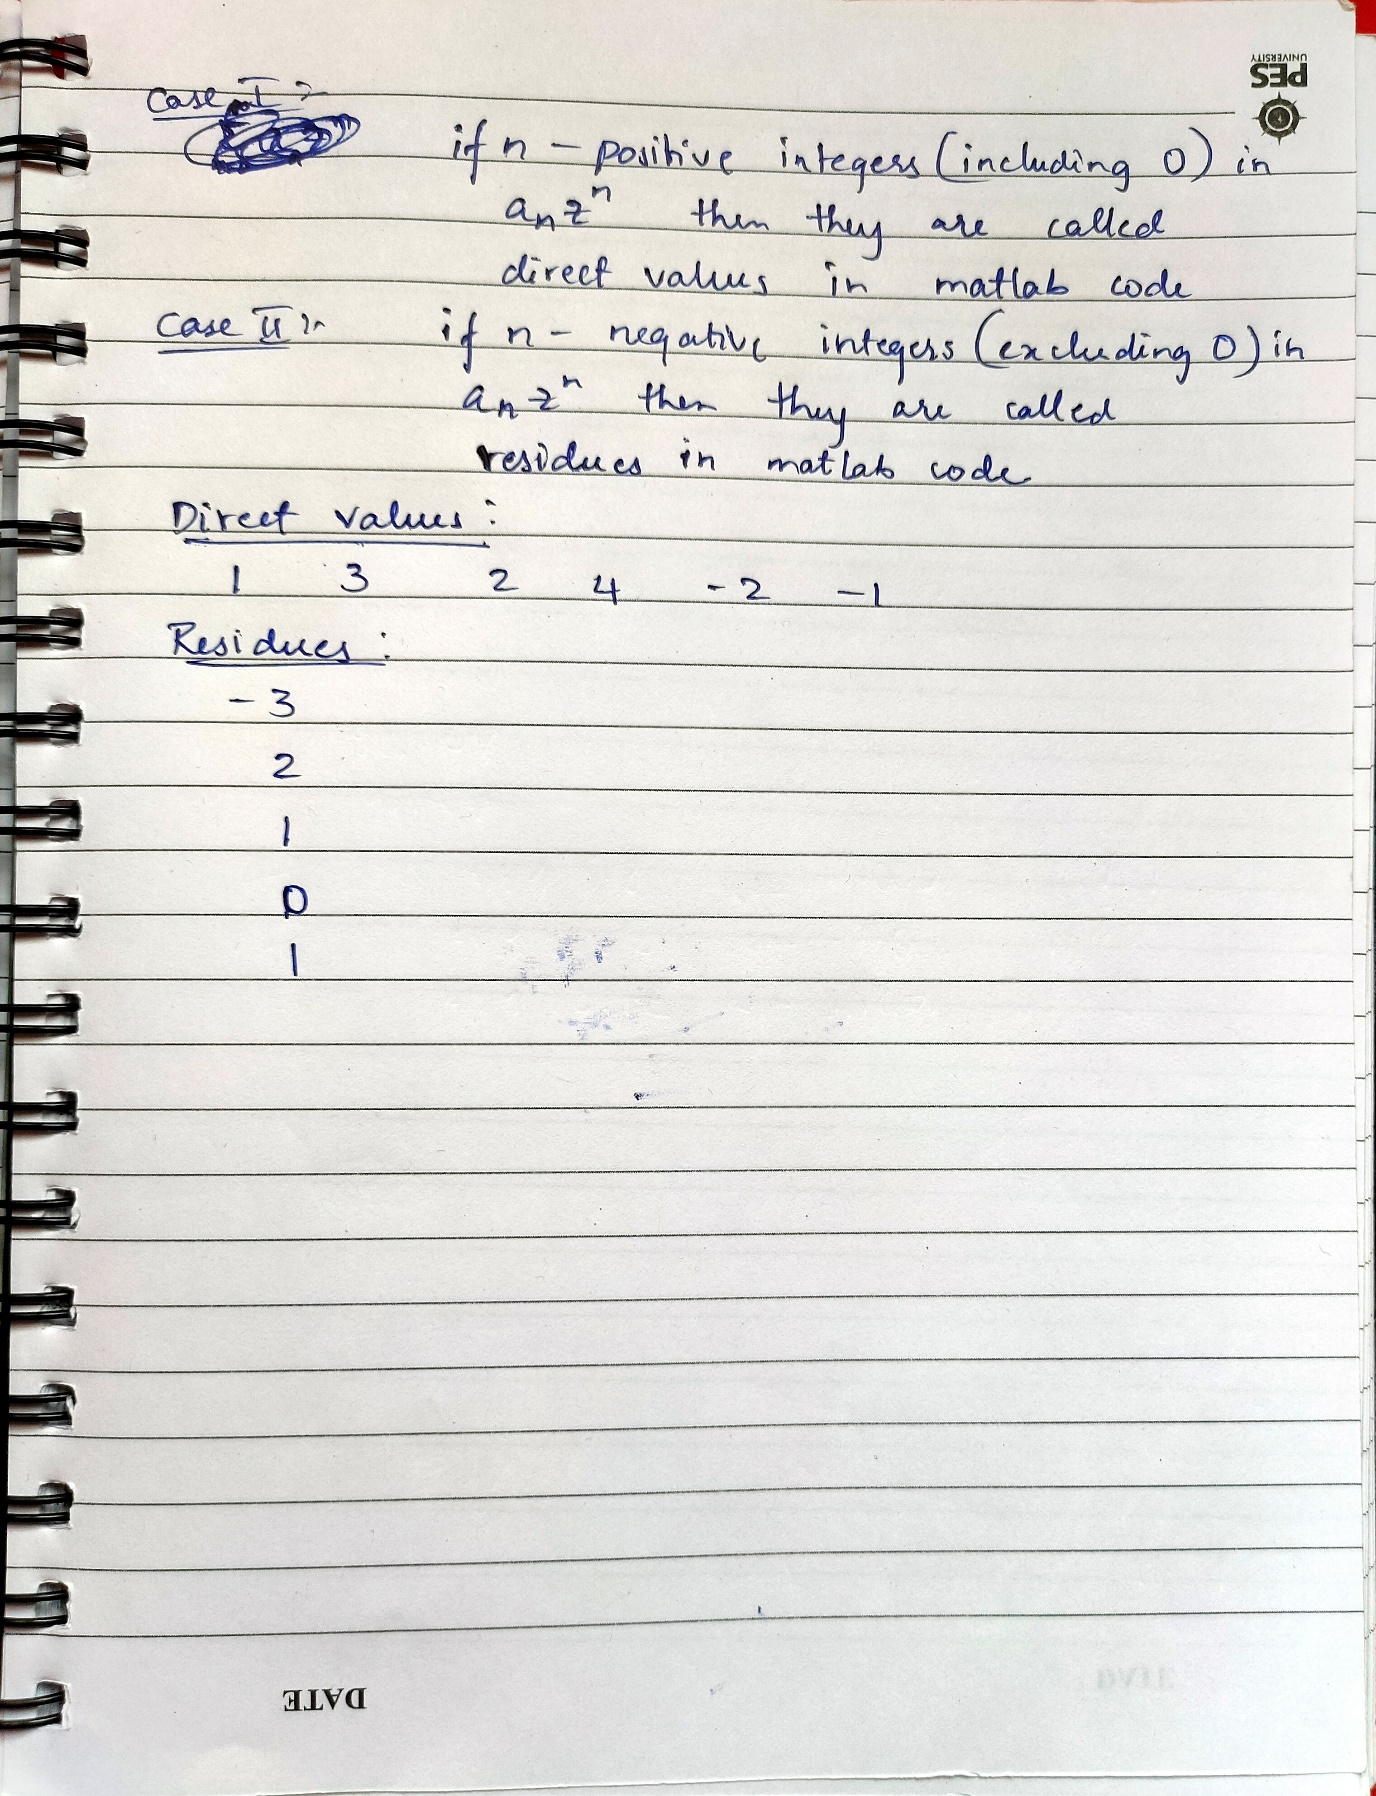 Case I :-
if n - positive integers (including 0) in
aₙ zⁿ then they are called
direct values in matlab code
Case II :-
if n - negative integers (excluding 0) in
aₙ zⁿ then they are called
residues in matlab code
Direct values :
1 3 2 4 -2 -1
Residues :
-3
2
1
0
1
PES
UNIVERSITY
DATE